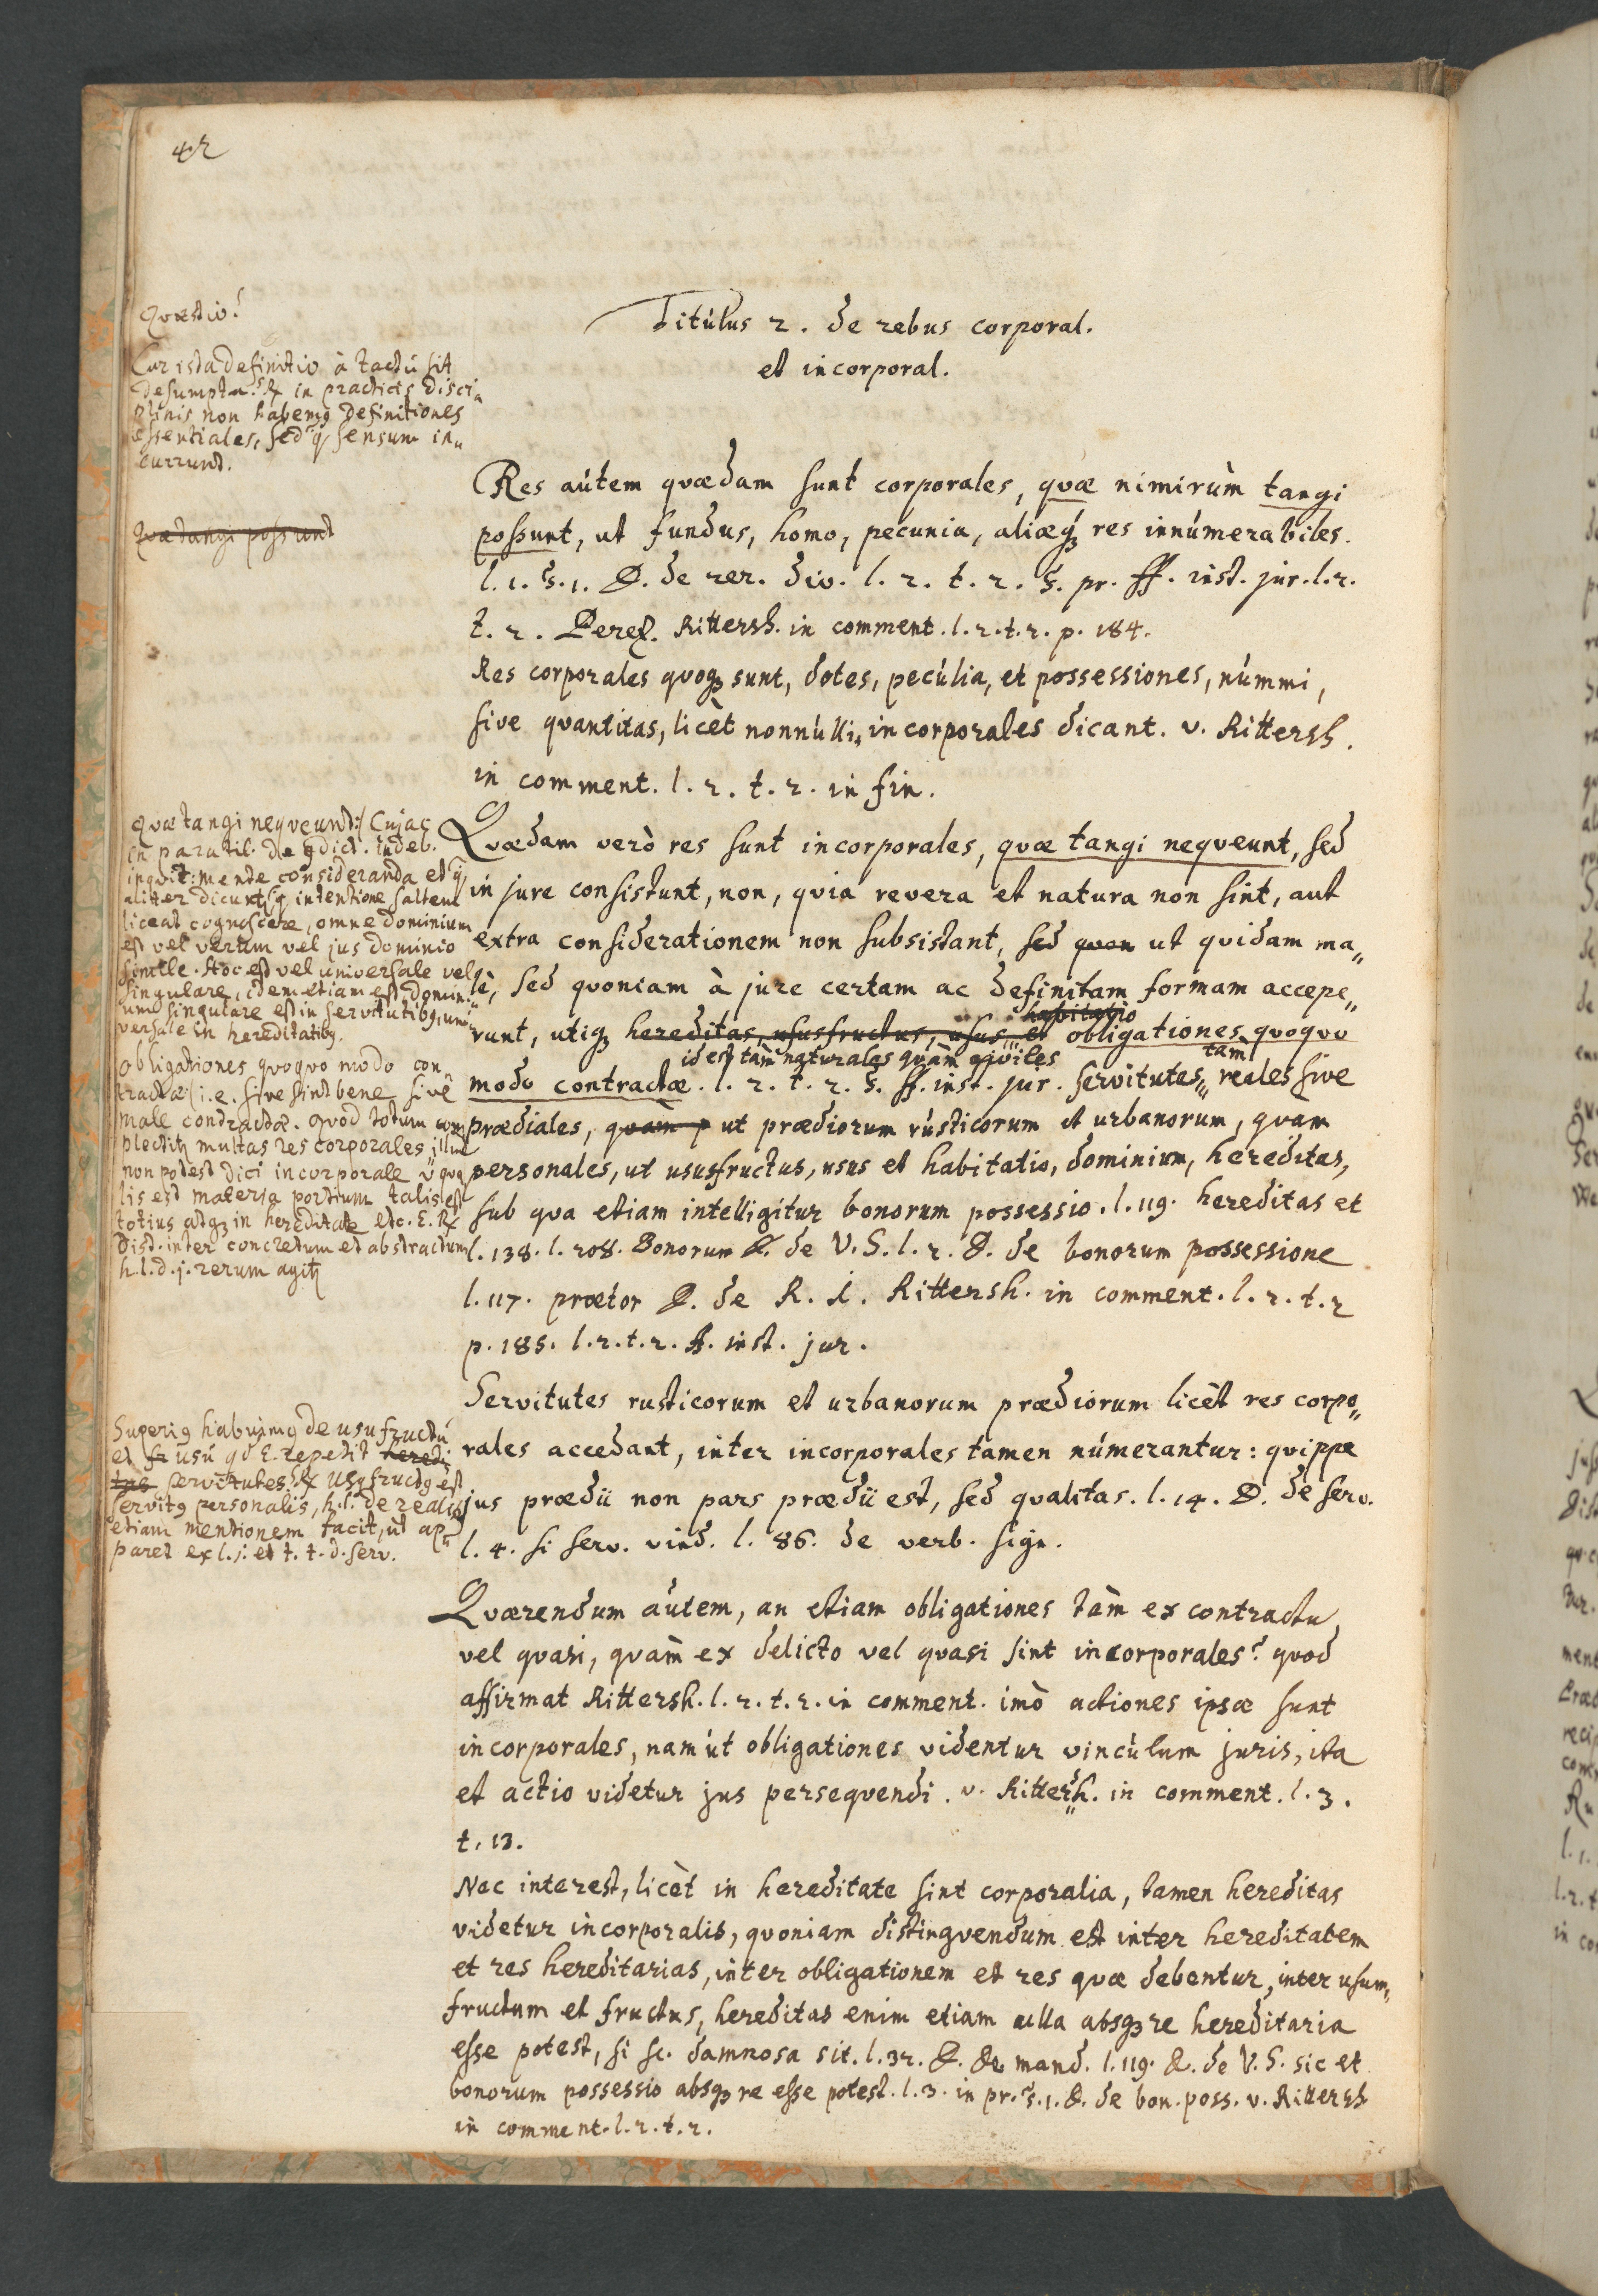 42
Titúlus 2. de rebus corporal.
et incorporal.
Quæstio?
Cur ista definitio à tactú sit
desumpta? ℞ in practicis disci„
plinis non habemꝰ definitiones
essentiales, sed q̃ sensum in„
currund.
Quæ tangi possunt
Res aútem quædam sunt corporales, quæ nimirùm tangi
possunt, ut fundus, homo, pecunia, aliæqꝫ res innúmerabiles.
l. 1. §. 1. D. de rer. div. l. 2. t. 2. §. pr. ff. inst. jur. l. 2.
t. 2. Perez. Rittersh. in comment. l. 2. t. 2. p. 184.
Res corporales quoqꝫ sunt, dotes, pecúlia, et possessiones, númmi,
sive quantitas, licèt nonnúlli, incorporales dicant. v. Rittersh.
in comment. l. 2. t. 2. in fin.
quæ tangi neqveunt: Cujac
in paratil. de indeb.
inquit: mente consideranda et q̃
aliter dicunt, q̃ intentione saltem
liceat cognoscere, omne dominium
est vel verum vel jus dominio
simile. Hoc est vel universale vel
singulare, idem etiam est domin:
um singulare est in servitutibꝰ, uni:
versale in hereditatibꝰ.
obligationes quoquo modo con„
tractæ i.e. sive sint bene sive
male contractæ. quod totum com
plectitꝛ multas res corporales illud
non potest dici incorporale
lis est materia partium talis est
totius atqꝫ in hereditate etc. E. ℞
Dist. inter concretum et abstractum
h. l. d. j. rerum agitꝛ
Quædam verò res sunt incorporales, quæ tangi neqveunt, sed
in jure consistunt, non, quia revera et natura non sint, aut
extra considerationem non subsistant, sed quon ut quidam ma„
lè, sed quoniam à jure certam ac definitam formam accepe„
habitatio
runt, utiqꝫ hereditas, ususfructus, usus et obligationes quoquo
id est tàm naturales quàm civiles tam
modo contractæ. l. 2. t. 2. §. ff. inst. jur. servitutes„ reales sive
prædiales, quàm p ut prædiorum rústicorum et urbanorum, quam
personales, ut ususfructus, usus et habitatio, dominium, hereditas,
sub qua etiam intelligitur bonorum possessio. l. 119. hereditas et
l. 138. l. 208. Bonorum D. de V. S. l. 2. D. de bonorum possessione
l. 117. prætor D. de R. I. Rittersh. in comment. l. 2. t. 2
p. 185. l. 2. t. 2. ff. inst. jur.
Superiꝰ habuimꝰ de usufructú
et fr usú qd E. repetit heredi
tas servitutes? ℞ Ususfructꝰ est
servitꝰ personalis, h. l. de realib
etiam mentionem facit, ut ap„
paret ex l. j. et t. t. d. serv.
Servitutes rusticorum et urbanorum prædiorum licèt res corpo„
rales accedant, inter incorporales tamen númerantur: quippe
jus prædii non pars prædii est, sed qualitas. l. 14. D. de serv.
l. 4. si serv. vind. l. 86. de verb. sign.
Quærendum aútem, an etiam obligationes tàm ex contractu
vel quasi, quàm ex delicto vel quasi sint incorporales? quod
affirmat Rittersh. l. 2. t. 2. in comment. imò actiones ipsæ sunt
incorporales, nam út obligationes videntur vincúlum juris, ita
et actio videtur jus persequendi. v. Rittersh. in comment. l. 3.
t. 13.
Nec interest, licèt in hereditate sint corporalia, tamen hereditas
videtur incorporalis, quoniam distingvendum est inter hereditatem
et res hereditarias, inter obligationem et res quæ debentur, inter usum„
fructum et fructus, hereditas enim etiam ulla absqꝫ re hereditaria
esse potest, si sc. damnosa sit. l. 32. D. de mand. l. 119. D. de V. S. sic et
bonorum possessio absqꝫ re esse potest. l. 3. in pr. §. 1. D. de bon. poss. v. Rittersh
in comment. l. 2. t. 2.